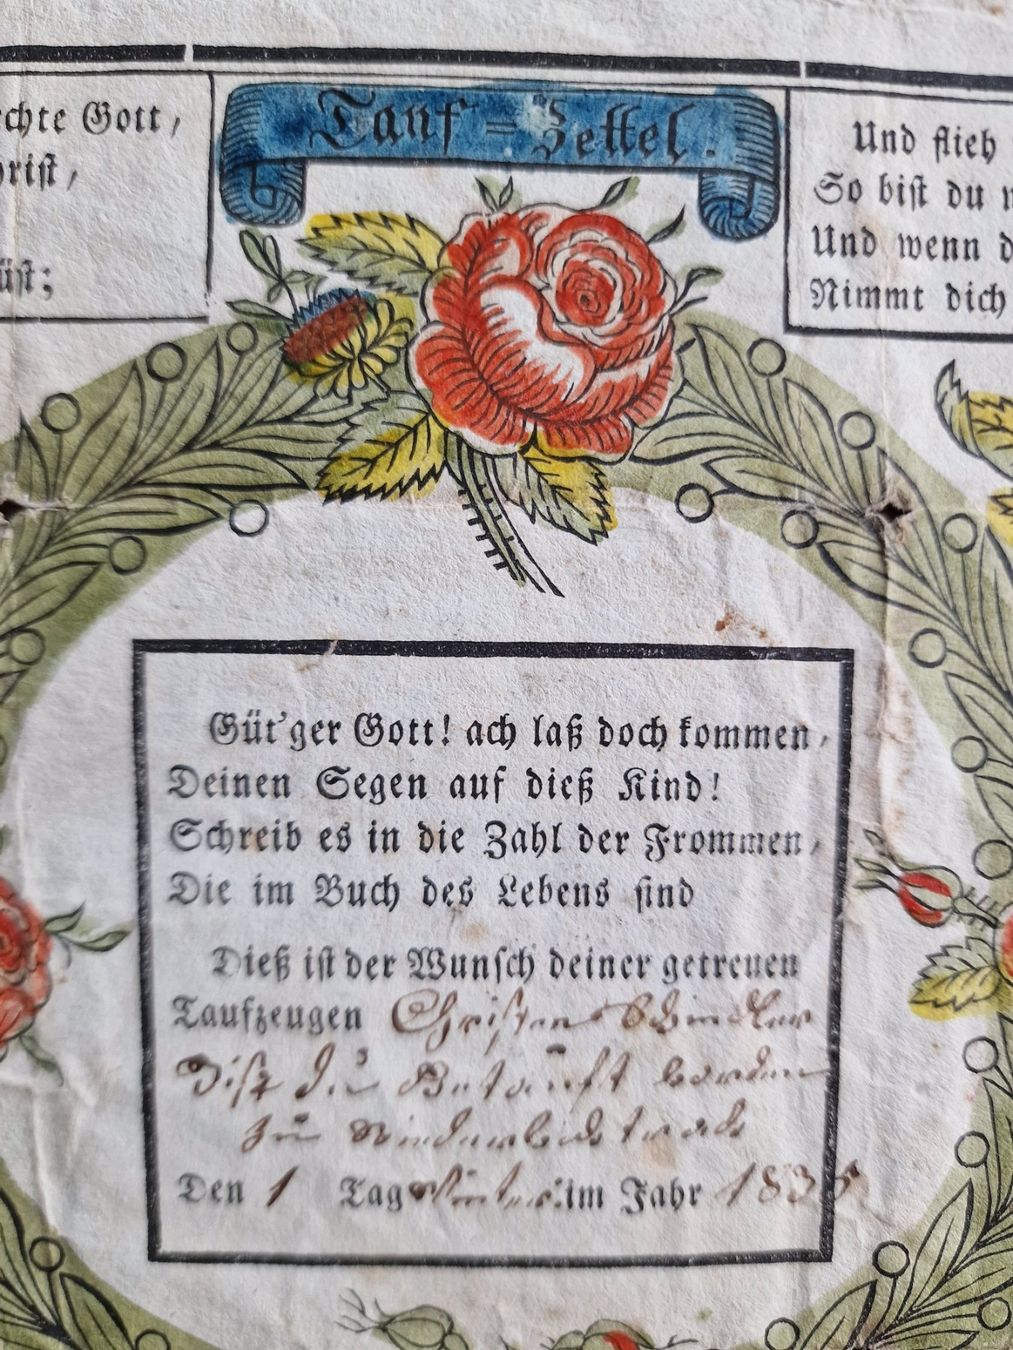 echte Gott,
hrist,
üst;
Tauf=Zettel.
Und flieh
So bist du
Und wenn
Nimmt dich
Güt'ger Gott! ach laß doch kommen,
Deinen Segen auf dieß Kind!
Schreib es in die Zahl der Frommen,
Die im Buch des Lebens sind
Dieß ist der Wunsch deiner getreuen
Taufzeugen Christen Schindler
worden
zu
Den 1 Tag im Jahr 1835